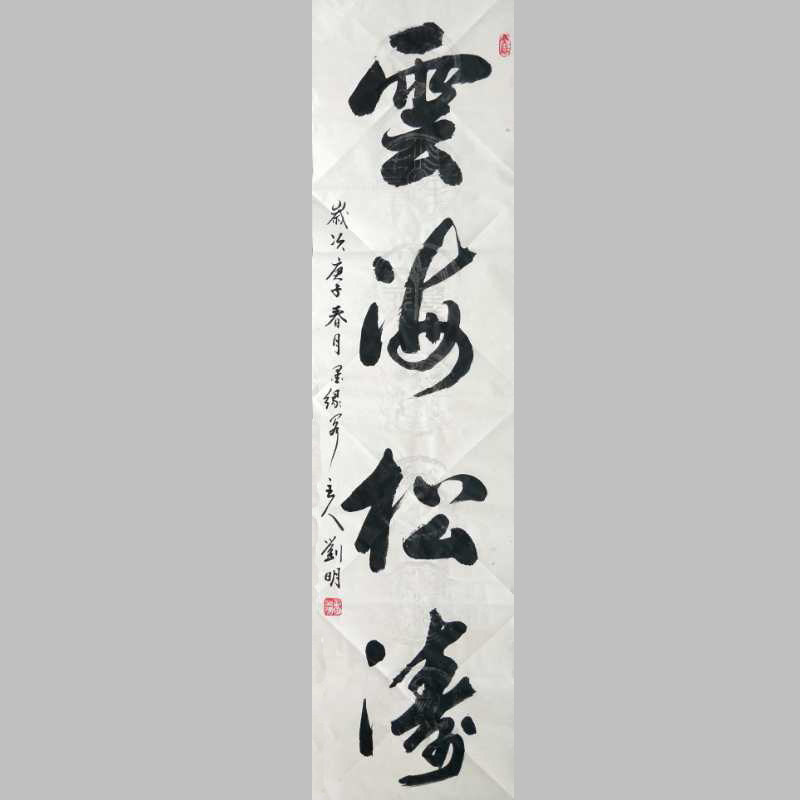 雲海松濤
歲次庚子春月墨緣客主人劉明